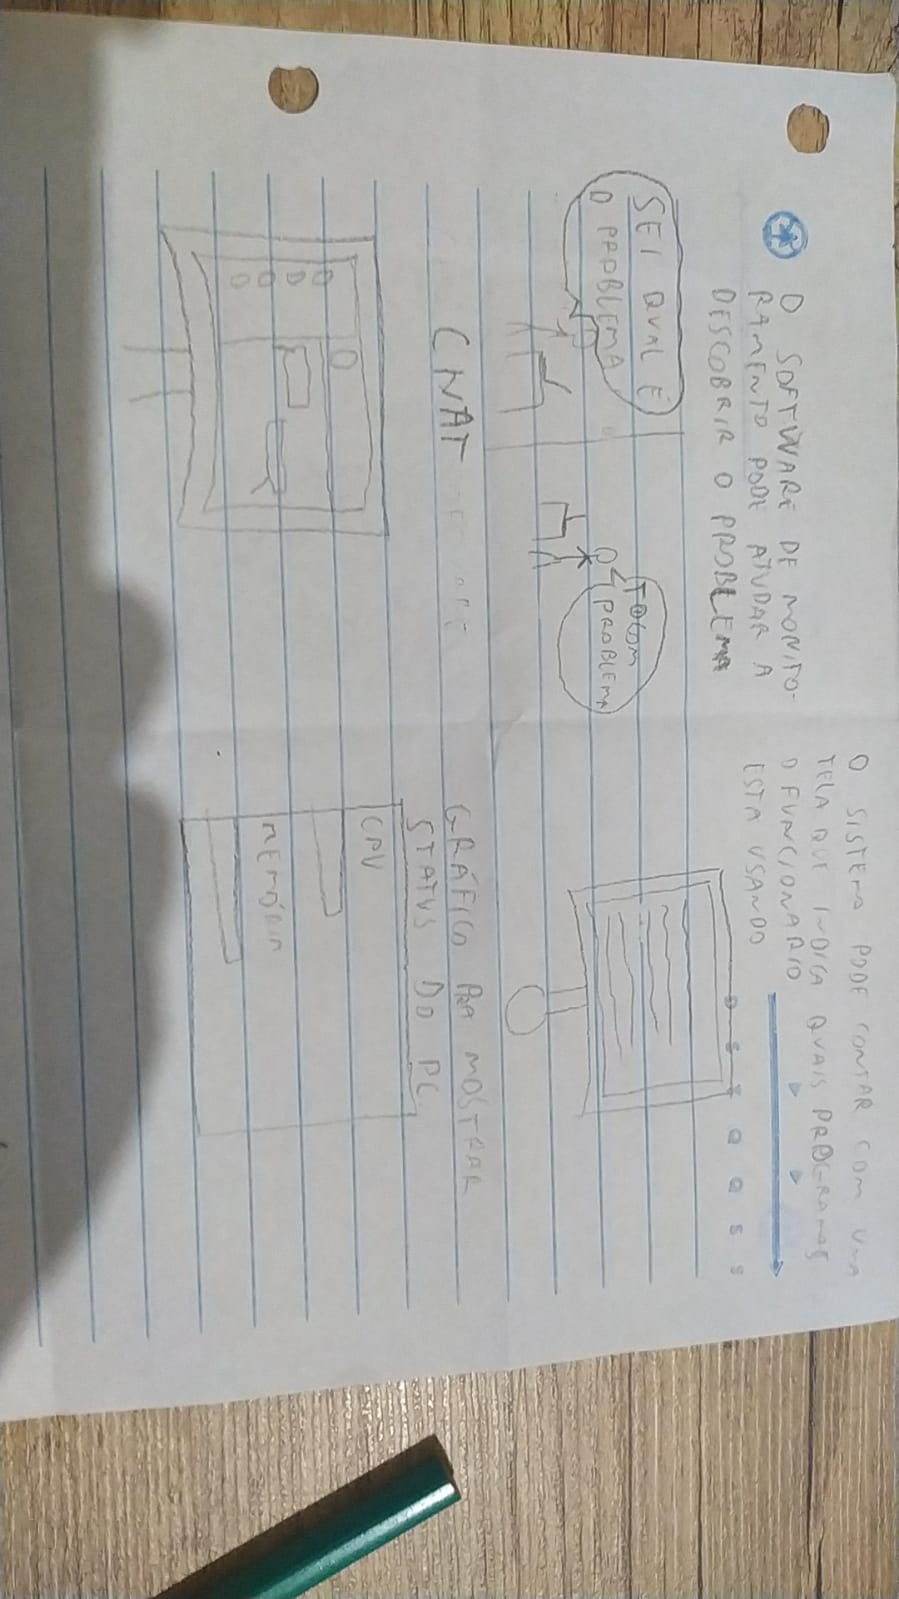 O SOFTWARE DE MONITO-
RAMENTO PODE AJUDAR A
DESCOBRIR O PROBLEMA
SEI QUAL É
O PROBLEMA
TO COM
PROBLEMA
O SISTEMA PODE CONTAR COM UMA
TELA QUE INDICA QUAIS PROGRAMAS
O FUNCIONARIO
ESTA USANDO
D S T Q Q S S
CHAT
GRÁFICO PRA MOSTRAR
STATUS DO PC
CPU
MEMÓRIA